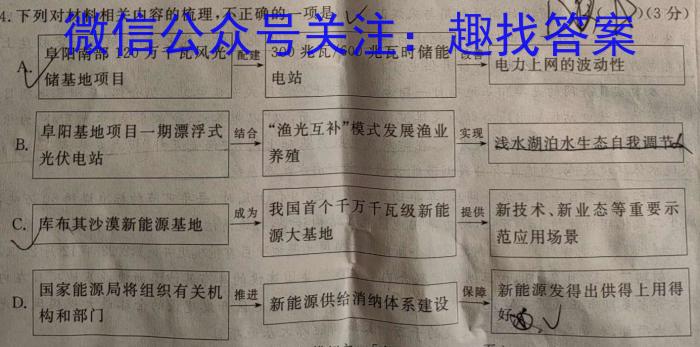 4.下列对材料相关内容的梳理,不正确的一项是
)(3分)
微信公众号关注:趣找答案
A.
阜阳南部120万千瓦风光
储基地项目
配建
300兆瓦/600兆瓦时储能
电站
电力上网的波动性
B.
阜阳基地项目一期漂浮式
光伏电站
结合
“渔光互补”模式发展渔业
养殖
实现
浅水湖泊水生态自我调节
C.
库布其沙漠新能源基地
成为
我国首个千万千瓦级新能
源大基地
提供
新技术、新业态等重要示
范应用场景
D.
国家能源局将组织有关机
构和部门
推进
新能源供给消纳体系建设
保障
新能源发得出供得上用得
好